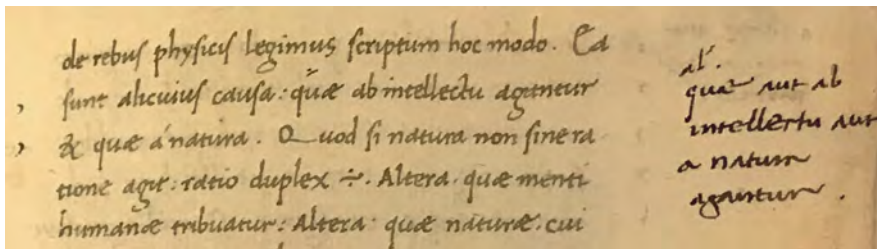 de rebus physicis legimus scriptum hoc modo. Ea
sunt alicuius causa: quæ ab intellectu aguntur
& quæ á natura. Quod si natura non sine ra
tione agit: ratio duplex ÷. Altera. quæ menti
humanæ tribuatur: Altera. quæ naturæ. cui
al'.
quæ aut ab
intellectu aut
a natura
agantur.